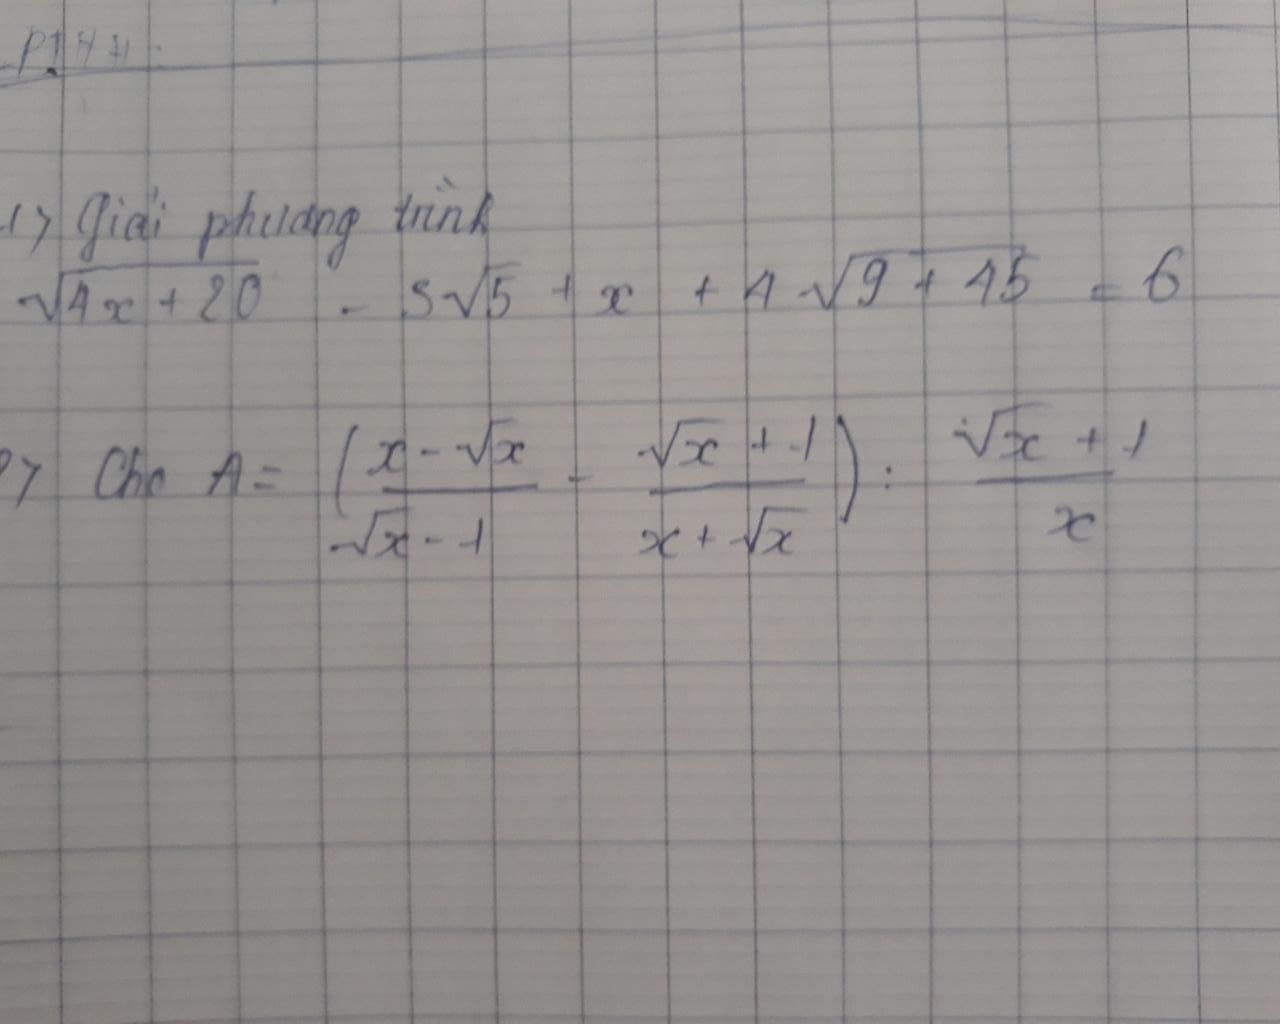 1> Giải phương trình
√(4x + 20) - 3√5 + x + 4√(9 + 45) = 6
2> Cho A = ((x - √x)/(√x - 1) - (√x + 1)/(x + √x)) : (√x + 1)/x